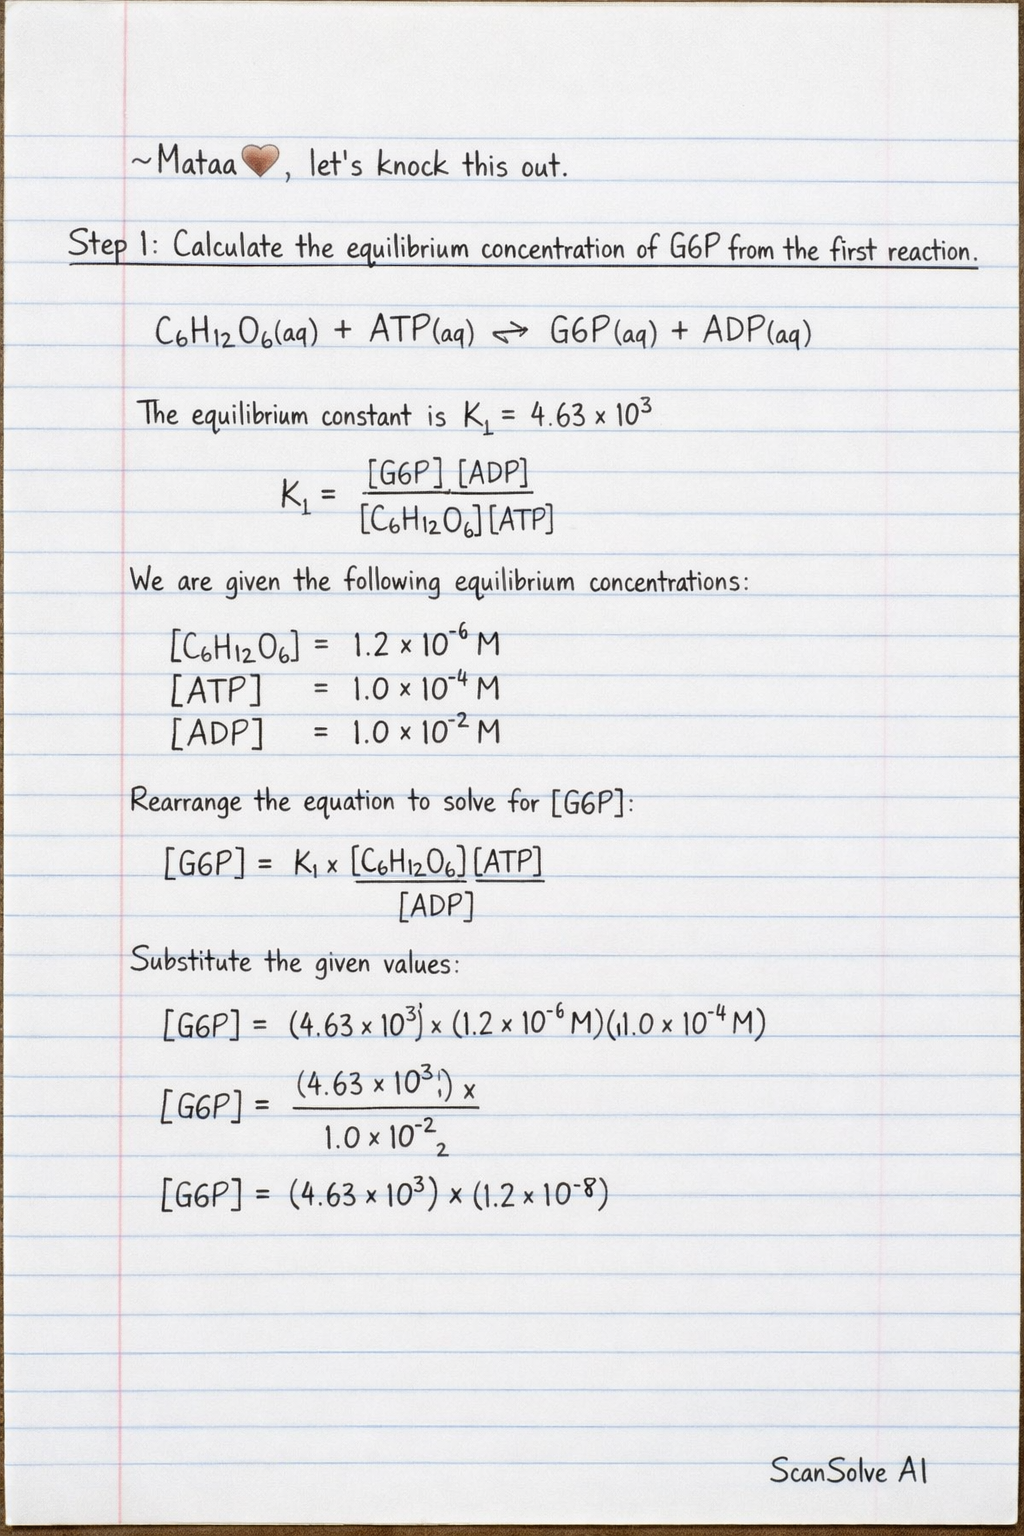 ~Mataa🤎, let's knock this out.
Step 1: Calculate the equilibrium concentration of G6P from the first reaction.
C₆H₁₂O₆(aq) + ATP(aq) ⇌ G6P(aq) + ADP(aq)
The equilibrium constant is K₁ = 4.63 × 10³
K₁ = [G6P] [ADP]
[C₆H₁₂O₆][ATP]
We are given the following equilibrium concentrations:
[C₆H₁₂O₆] = 1.2 × 10⁻⁶ M
[ATP] = 1.0 × 10⁻⁴ M
[ADP] = 1.0 × 10⁻² M
Rearrange the equation to solve for [G6P]:
[G6P] = K₁ × [C₆H₁₂O₆][ATP]
[ADP]
Substitute the given values:
[G6P] = (4.63 × 10³) × (1.2 × 10⁻⁶ M)(1.0 × 10⁻⁴ M)
[G6P] = (4.63 × 10³) ×
1.0 × 10⁻²₂
[G6P] = (4.63 × 10³) × (1.2 × 10⁻⁸)
ScanSolve AI